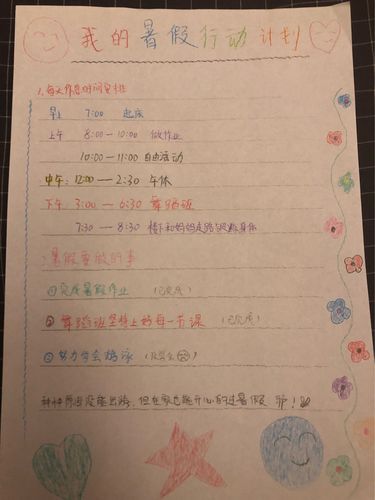 我的暑假行动计划
1.每天作息时间安排
早上 7:00 起床
上午 8:00-10:00 做作业
10:00-11:00 自由活动
中午:12:00-2:30 午休
下午 3:00-6:30 舞蹈班
7:30-8:30 楼下和妈妈走路锻炼身体
暑假要做的事
①完成暑假作业 (已完成)
②舞蹈班坚持上好每一节课 (已完成)
③努力学会游泳 (没学会)
种种原因没能出游,但在家也能开心的过暑假 耶!